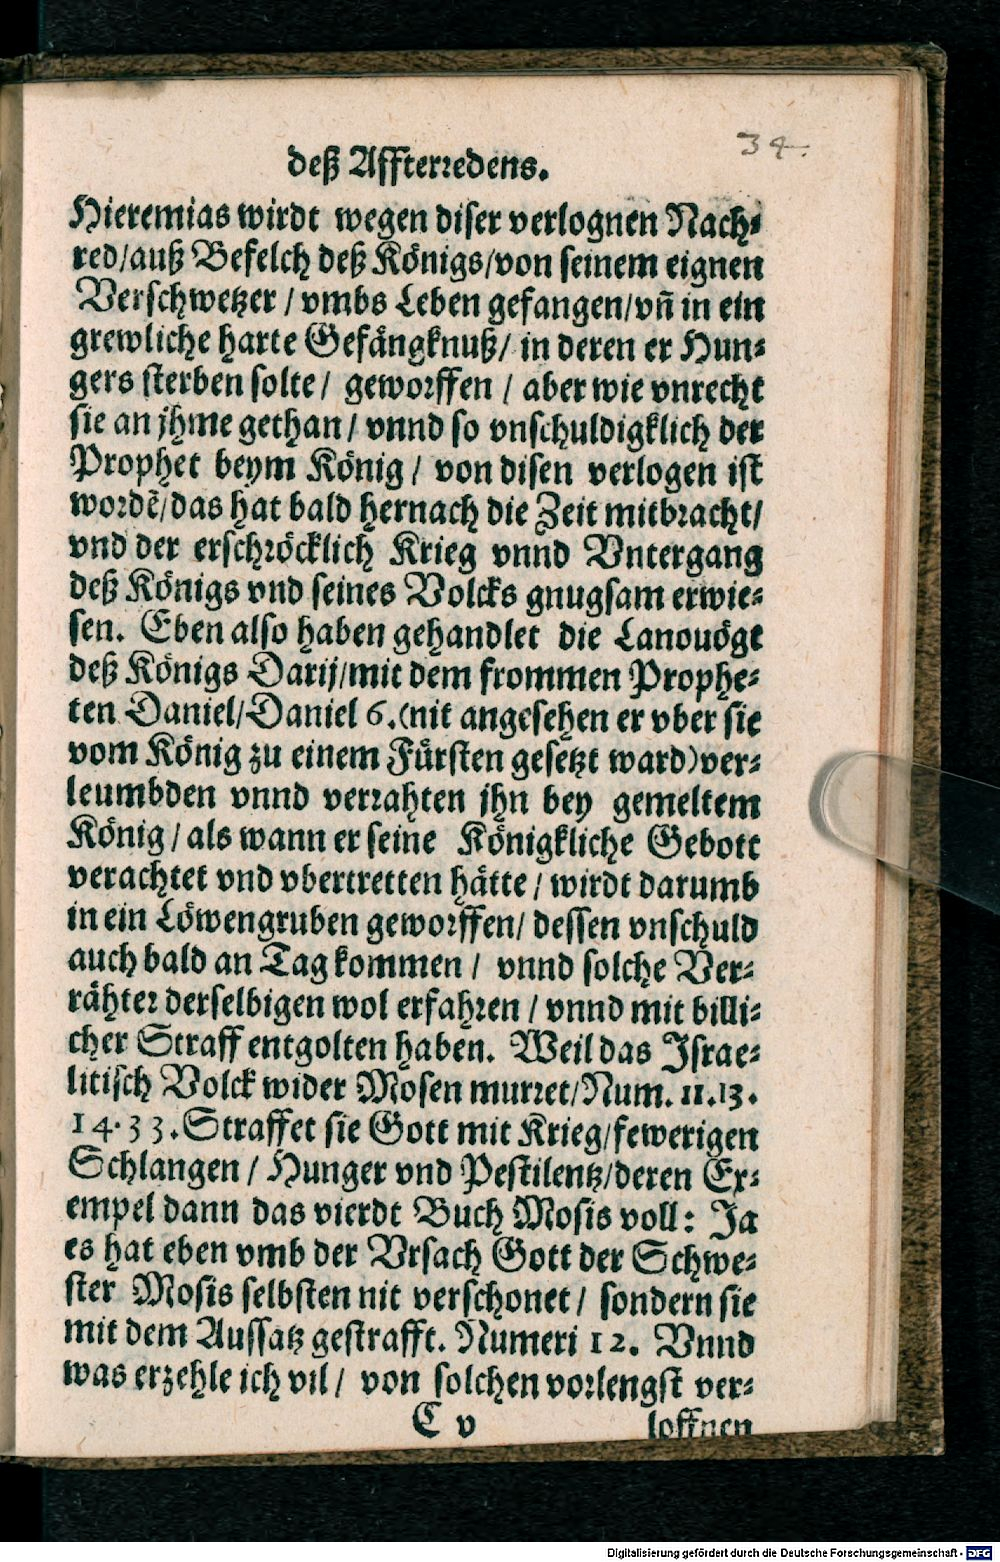 34.
deß Affterredens.
Hieremias wirdt wegen diser verlognen Nach⸗
red/auß Befelch deß Königs/von seinem eignen
Verschwetzer / vmbs Leben gefangen/vñ in ein
grewliche harte Gefängknuß/ in deren er Hun⸗
gers sterben solte/ geworffen / aber wie vnrecht
sie an jhme gethan/ vnnd so vnschuldigklich der
Prophet beym König / von disen verlogen ist
wordẽ/das hat bald hernach die Zeit mitbracht/
vnd der erschröcklich Krieg vnnd Vntergang
deß Königs vnd seines Volcks gnugsam erwie⸗
sen. Eben also haben gehandlet die Lanouögt
deß Königs Darij/mit dem frommen Prophe⸗
ten Daniel/Daniel 6.(nit angesehen er vber sie
vom König zu einem Fürsten gesetzt ward)ver⸗
leumbden vnnd verrahten jhn bey gemeltem
König / als wann er seine Königkliche Gebott
verachtet vnd vbertretten hätte / wirdt darumb
in ein Löwengruben geworffen/ dessen vnschuld
auch bald an Tag kommen / vnnd solche Ver⸗
rähter derselbigen wol erfahren / vnnd mit billi⸗
cher Straff entgolten haben. Weil das Israe⸗
litisch Volck wider Mosen murret/Num. 11.13.
14.33.Straffet sie Gott mit Krieg/fewerigen
Schlangen / Hunger vnd Pestilentz/deren Ex⸗
empel dann das vierdt Buch Mosis voll: Ja
es hat eben vmb der Vrsach Gott der Schwe⸗
ster Mosis selbsten nit verschonet / sondern sie
mit dem Aussatz gestrafft. Numeri 12. Vnnd
was erzehle ich vil / von solchen vorlengst ver⸗
C v loffnen
Digitalisierung gefördert durch die Deutsche Forschungsgemeinschaft - DFG